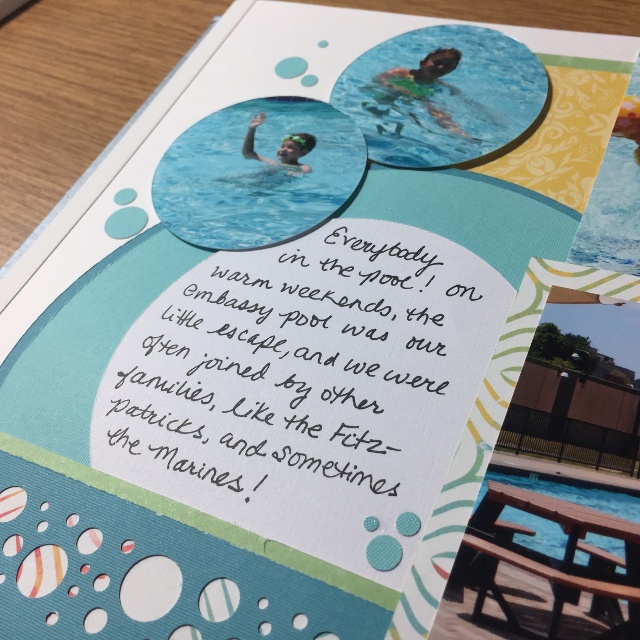 Everybody
in the pool! on
warm weekends, the
embassy pool was our
little escape, and we were
often joined by other
families, like the Fitz-
patricks, and sometimes
the Marines!